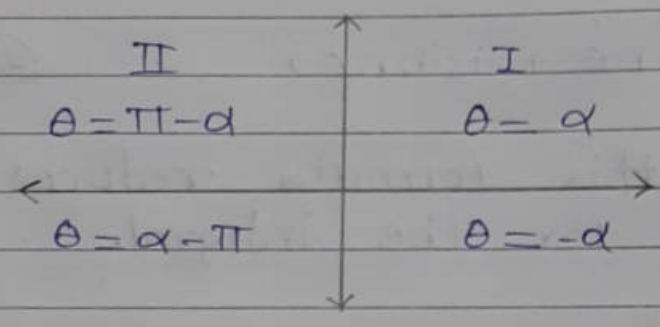 II I
θ = π - α θ = α
θ = α - π θ = -α